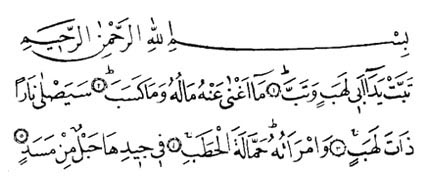 بِسْمِ اللهِ الرَّحْمٰنِ الرَّحِيمِ
تَبَّتْ يَدَٓا اَبٖي لَهَبٍ وَتَبَّ ﴿١﴾ مَٓا اَغْنٰى عَنْهُ مَالُهُ وَمَا كَسَبَ ﴿٢﴾ سَيَصْلٰى نَارًا
ذَاتَ لَهَبٍ ﴿٣﴾ وَامْرَاَتُهُ حَمَّالَةَ الْحَطَبِ ﴿٤﴾ فٖي جٖيدِهَا حَبْلٌ مِنْ مَسَدٍ ﴿٥﴾